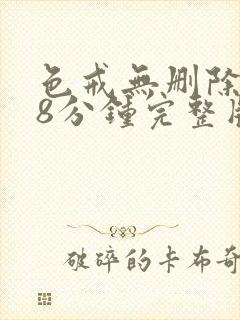 色戒無刪除
8分鍾完整
破碎的卡布奇